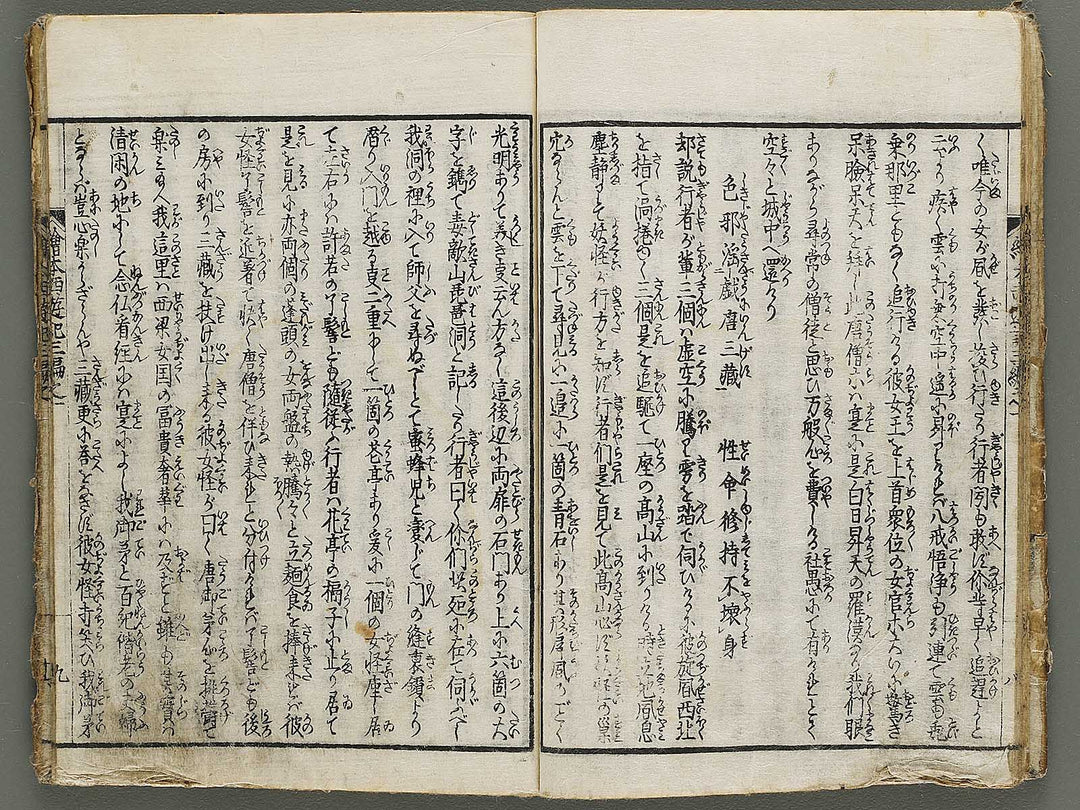 く唯今の女が昏を巻て落し行たり行者聞も敢ず你輩早く追蹤よと
いふより疾く雲に打乗空中遥に昇りしかば八戒悟浄も引連て雲に飛
乗那里ともなく追行ける彼女王を上首衆位の女官大いに驚き
呆臉呆天を拝し此唐僧ハ寔に是白日昇天の羅漢なり我們眼
ありながら尋常の僧徒と思ひ万般心を費しける社愚にて有けれとて
空々と城中へ還りけり
色邪淫戯唐三藏 性命修持不壊身
却説行者が輩三個ハ虚空に騰り雲を踏で伺ひけるに彼旋風西北
を指て渦捲行く三個是を追駆て一座の高山に到りける時
塵静まりて妖怪が行方を知ず行者們是を見て此高山必ず妖怪の巣
穴ならんと雲を下て尋見に一邊に一箇の青石あり其形屏風のごとく
光明ありて美き事云ん方なし這後辺に両扉の石門あり上に六箇の大
字を鐫て毒敵山琵琶洞と記したり行者曰く你們ハ茲に在て伺ふべし
我洞の裡に入て師父を尋ぬべしとて蜜蜂児と変じて門の縫裏鑚より
潜り入門を越る事二重にして一箇の花亭あり爰に一個の女怪座し居
て左右にハ許若の丫髻ども随従へり行者ハ花亭の槅子に止り居て
是を見に亦両個の蓬頭の女両盤の熱騰々と立麺食を捧来れば彼
女怪丫髻を近着て快く唐僧を伴ひ来れと分付れバ丫髻ども後
の房に到り三藏を扶け出し来る彼女怪が曰く唐御弟心を排寛て
楽ミ玉へ我這里ハ西梁女国の富貴奢華にハ及ざると雖も其實ハ
清閑の地にして念仏看経にハ寔によし我御身と百年偕老の夫婦
とならバ豈心楽しからざらんや三藏更に答をなさず彼女怪寺笑ひ我御弟
繪本西遊記三編之一
九